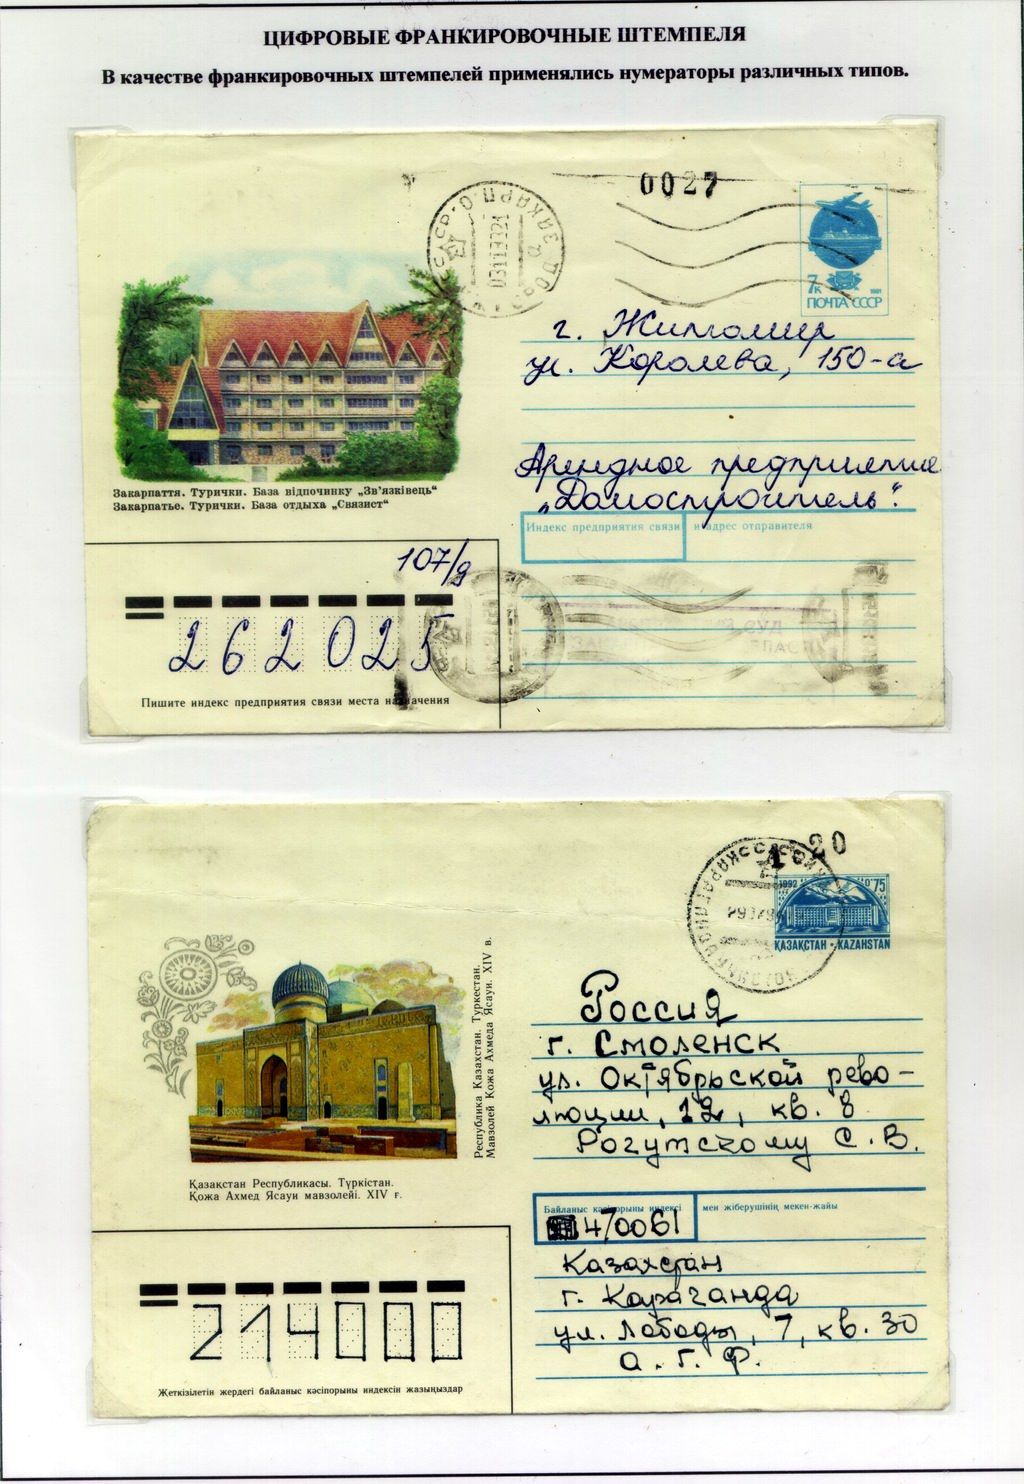 ЦИФРОВЫЕ ФРАНКИРОВОЧНЫЕ ШТЕМПЕЛЯ
В качестве франкировочных штемпелей применялись нумераторы различных типов.
0027
7к
1991
ПОЧТА СССР
г. Житомир
ул. Королева, 150-а
Арендное предприятие
„Домостроитель".
Закарпаття. Турички. База відпочинку „Зв'язківець"
Закарпатье. Турички. База отдыха „Связист"
Индекс предприятия связи и адрес отправителя
107/9
262025
СУД
Пишите индекс предприятия связи места назначения
1 20
1992 75
ҚАЗАҚСТАН • KAZAHSTAN
Республика Казахстан. Туркестан.
Мавзолей Кожа Ахмеда Ясауи. XIV в.
Қазақстан Республикасы. Түркістан.
Қожа Ахмед Ясауи мавзолейі. XIV ғ.
Россия
г. Смоленск
ул. Октябрьской рево-
люции, 12, кв. 8
Рогутскому С. В.
Байланыс кәсіпорыны индексі мен жіберушінің мекен-жайы
470061
Казахстан
г. Караганда
ул. Лободы, 7, кв. 30
а. г. Ф.
214000
Жеткізілетін жердегі байланыс кәсіпорыны индексін жазыңыздар